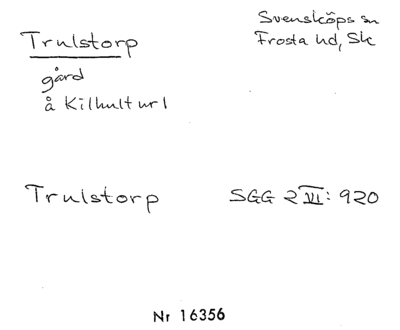 Trulstorp
Svensköps sn
Frosta hd, Sk
gård
å Kilhult nr 1
Trulstorp SGG 2 VI: 920
Nr 16356